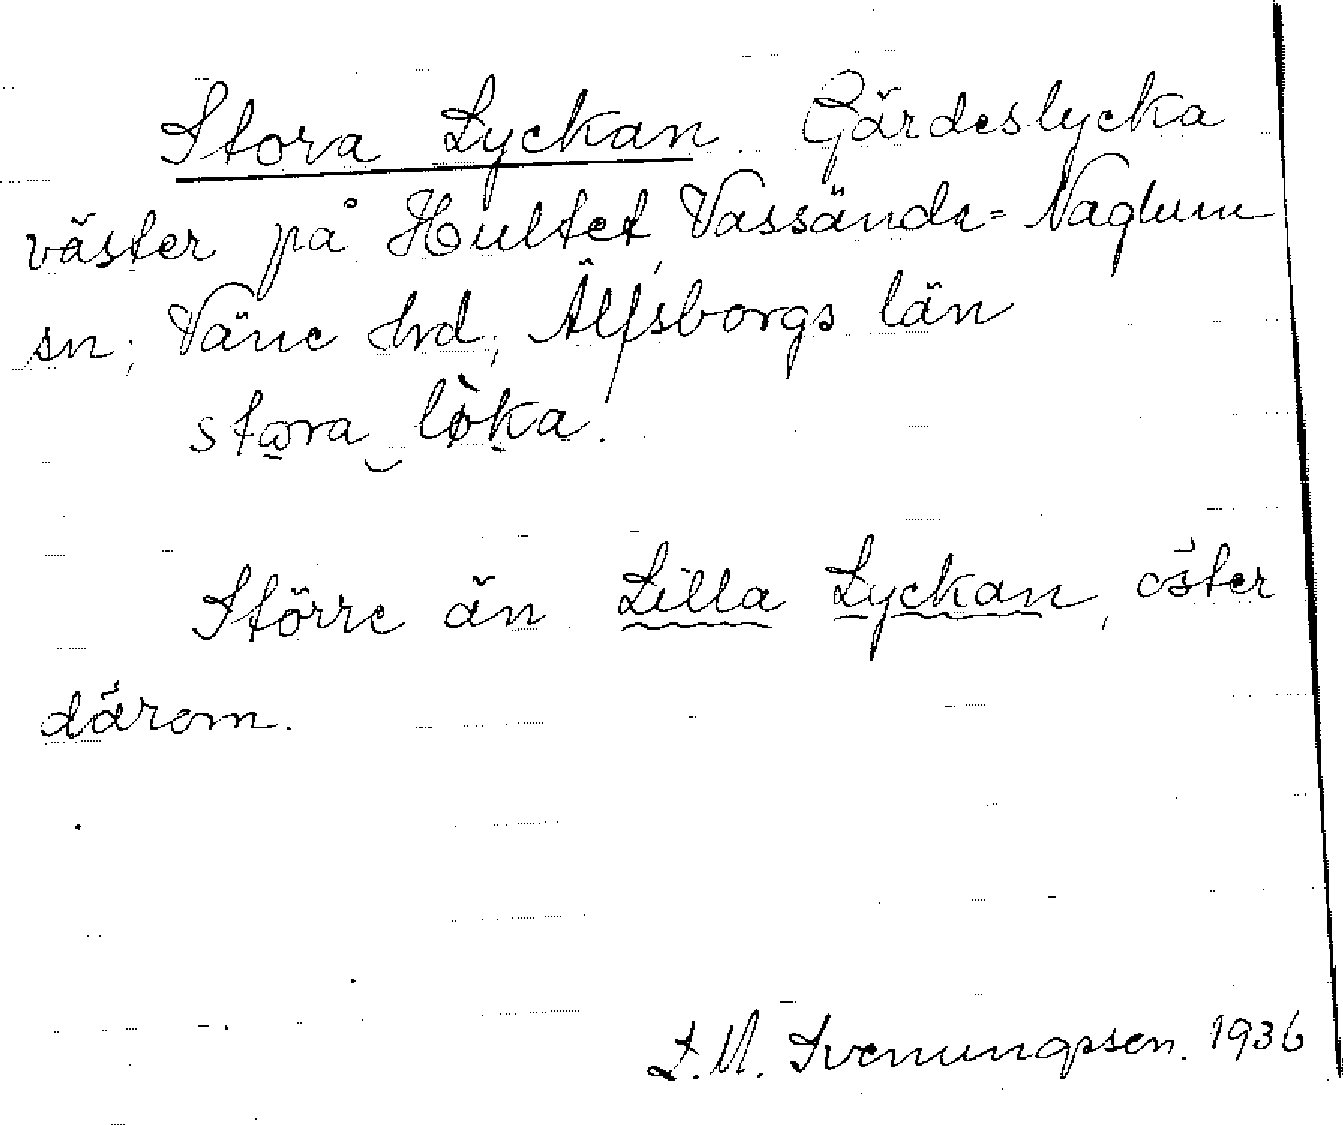 Stora Lyckan Gärdeslycka
väster på Hultet, Vassända-Naglum
sn; Väne hrd, Älfsborgs län
stora löka.
Större än Lilla Lyckan, öster
därom.
L. M. Svenungsson. 1936